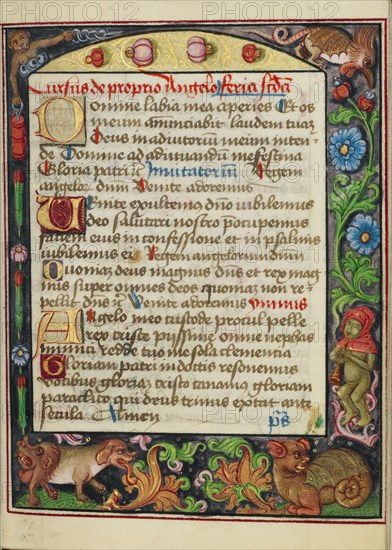 Cursus de proprio Angelo feria scda
Domine labia mea aperies Et os
meum annunciabit laudem tuam
Deus in adiutorium meum inten
de Domine ad adiuvandum me festina
Gloria patri Invitatorium Regem
angelorum dnm Venite adoremus
Venite exultemus dno iubilemus
deo salutari nostro preocupemus
faciem eius in confessione et in psalmis
iubilemus ei Regem angelorum dnm
Quoniam deus magnus dns et rex mag
nus super omnes deos quoniam non re
pellit dns Venite adoremus Ymnus
Angelo meo custode procul pelle
rex christe piissime omne nephas
mundi redde tuo me sola clementia
Gloriam patri in dottis resonemus
votibus gloriam christo canamus gloriam
paraclito qui deus trinus extat ante
secula Amen ps